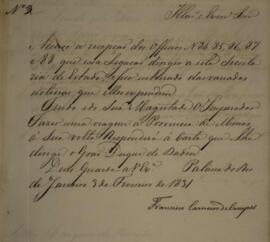 Nº 3
Illmo e Exmo Snr
Accuso a recepção dos Officios Nº 84, 85, 86, 87
e 88, que essa Legação dirigio a esta Secreta
ria de Estado, e fico inteirado das variadas
noticias que
Tendo ido Sua Magestade O Imperador
fazer uma viagem á Provincia de Minas,
á Sua volta Responderá á Carta que Lhe
dirigio o Grão Duque de Baden
Deos Guarde a V. Exa Palacio do Rio
de Janeiro 3 de Fevereiro de 1831
Francisco Carneiro de Campos